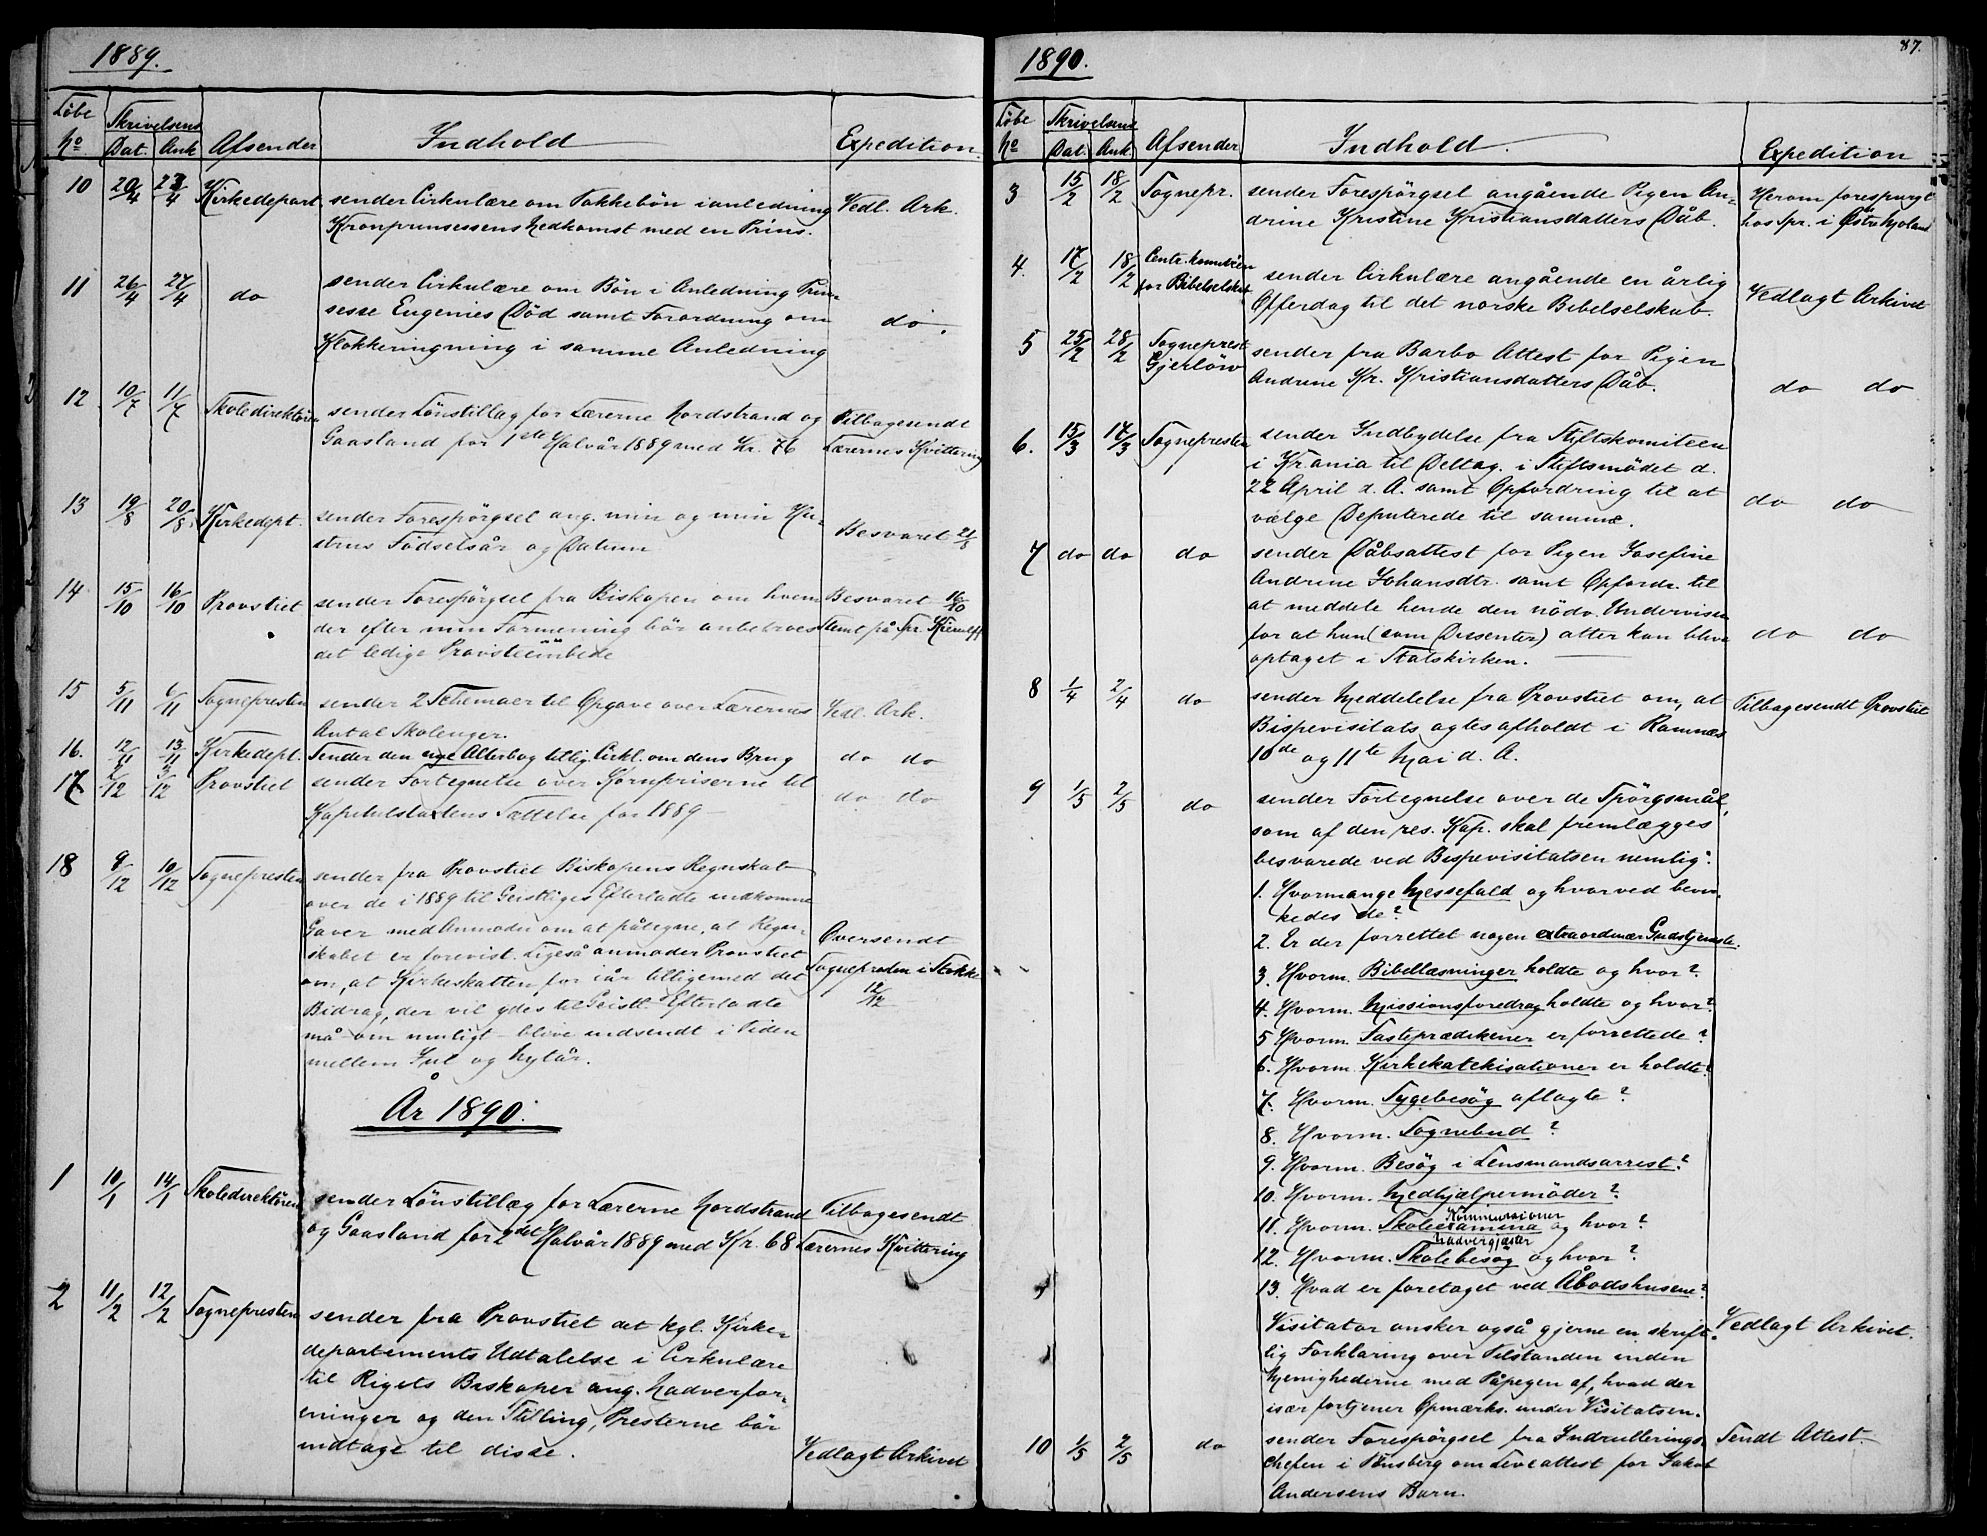 1889.
Löbe No Skrivelsens Dat. Ank Afsender Indhold Expedition.
10 20/4 23/4 Kirkedepart sender Cirkulære om Takkebön i anledning Vedl. Ark.
Kronprinsessens Nedkomst med en Prins.
11 26/4 27/4 do sender Cirkulære om Bön i Anledning Prin-
sesse Eugenies Död samt Forordning om do.
Klokkeringning i samme Anledning
12 10/7 11/7 Skoledirektören sender Lönstillæg for Lærerne Nordstrand og Tilbagesendt
Gaasland for 1ste Halvår 1889 med Kr. 76 Lærernes Kvittering
13 19/8 20/8 Kirkedept. sender Forespörgsel ang. min og min Hu-
strus Födselsår og Datum Besvaret 21/8
14 15/10 16/10 Provstiet sender Forespörgsel fra Biskopen om hvem Besvaret 16/10
der efter min Formening bör anbetroes Stemt på Spr. Kierulff
det ledige Provsteembede
15 5/11 6/11 Sognepresten sender 2 Schemaer til Opgave over Lærernes Vedl. Ark.
Antal Skolenger.
16. 12/11 13/11 Kirkedept. Sender den nye Alterbog tillig. Cirkl. om dens Brug do do
17 2/12 3/12 Provstiet sender Fortegnelse over Kornpriserne til do do
Kapitelstaxtens Sættelse for 1889 -
18 9/12 10/12 Sognepresten sender fra Provstiet Biskopens Regnskab
over de i 1889 til Geistliges Efterladte indkomne
Gaver med Anmodn om at påtegne, at Regn-
skabet er forevist. Ligeså anmoder Provstiet Oversendt
om, at Kirkeskatten for iår tilligemed det Sognepresten i Stokke
Bidrag, der vil ydes til Geistl. Efterladte 12/12
må - om muligt - blive indsendt i Tiden
mellem Jul og Nytår.
År 1890.
1 10/1 14/1 Skoledirektören sender Lönstillæg for Lærerne Nordstrand Tilbagesendt
og Gaasland for 2det Halvår 1889 med Kr. 68 Lærernes Kvittering
2 11/2 12/2 Sognepresten sender fra Provstiet det kgl. Kirke-
departements Udtalelse i Cirkulære
til Rigets Biskoper ang. Nadverfor-
eninger og den Stilling, Presterne bör
indtage til disse. Vedlagt Arkivet
1890. 87.
Löbe No Skrivelsens Dat. Ank. Afsender Indhold. Expedition
3 15/2 18/2 Sognepr. sender Forespörgsel angående Pigen An- Herom forespurgt
drine Kristine Kristiansdatters Dåb. hos Spr. i Östre Moland
4. 17/2 18/2 Centr. komitéen for Bibelselskab sender Cirkulære angående en årlig
Offerdag til det norske Bibelselskab. Vedlagt Arkivet
5 25/2 28/2 Sogneprest Gjerlöw sender fra Barbo Attest for Pigen
Andrine Kr. Kristiansdatters Dåb. do do
6. 15/3 17/3 Sognepresten sender Indbydelse fra Stiftskomiteen
i Kr.ania til Deltag. i Stiftsmödet d.
22 April d. A. samt Opfordring til at do do
vælge Deputerede til samme.
7 do do do sender Dåbsattest for Pigen Josefine
Andrine Johansdtr. samt Opfordr. til
at meddele hende den nödv. Undervisn
for at hun (som Dissenter) atter kan blive do do
optaget i Statskirken.
8 1/4 2/4 do sender Meddelelse fra Provstiet om, at Tilbagesendt Provstiet
Bispevisitats agtes afholdt i Ramnæs
10de og 11te Mai d. A.
9 1/5 2/5 do sender Fortegnelse over de Spörgsmål,
som af den res. Kap. skal fremlægges
besvarede ved Bispevisitatsen nemlig:
1. Hvormange Messefald og hvorved bevir-
kedes de?
2. Er der forrettet nogen extraordinær Gudstjeneste.
3. Hvorm. Bibellæsninger holdte og hvor?
4. Hvorm. Missionsforedrag holdte og hvor?
5 Hvorm. Fasteprædikener er forrettede?
6. Hvorm. Kirkekatekisationer er holdte?
7. Hvorm. Sygebesög aflagte?
8. Hvorm. Sognebud?
9. Hvorm. Besög i Lensmandsarrest?
10. Hvorm. Medhjælpermöder?
Kommunioner
11. Hvorm. Skoleexamina og hvor?
Nadvergjæster
12. Hvorm. Skolebesög og hvor?
13. Hvad er foretaget ved Åbodshusene?
Visitator önsker også gjerne en skrift- Vedlagt Arkivet.
lig Forklaring over Tilstanden inden
Menighederne med Påpegen af, hvad der
især fortjener Opmærks. under Visitatsen.
10 1/5 2/5 do sender Forespörgsel fra Indrullerings- Sendt Attest.
chefen i Tönsberg om Leveattest for Jakob
Andersens Barn.